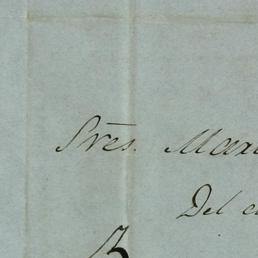 Sres. Mari
Del c
B